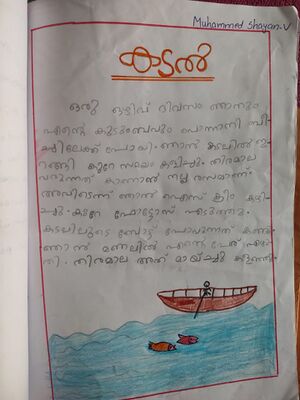 Muhammed Shayan.V
കടൽ
ഒരു ഒഴിവ് ദിവസം ഞാനും
എന്റെ കുടുംബവും പൊന്നാനി ബീ-
ച്ചിലേക്ക് പോയി. ഞാൻ കടലിൽ ഇ-
റങ്ങി കുറേ സമയം കുളിച്ചു. തിരമാല
വരുന്നത് കാണാൻ നല്ല രസമാണ്.
അവിടെന്ന് ഞാൻ ഐസ് ക്രീം കഴി-
ച്ചു. കുറേ ഫോട്ടോസ് എടുത്തു.
കടലിലൂടെ ബോട്ട് പോവുന്നത് കണ്ടു.
ഞാൻ മണലിൽ എന്റെ പേര് എഴു-
തി. തിരമാല അത് മായ്ച്ചു കളഞ്ഞു.